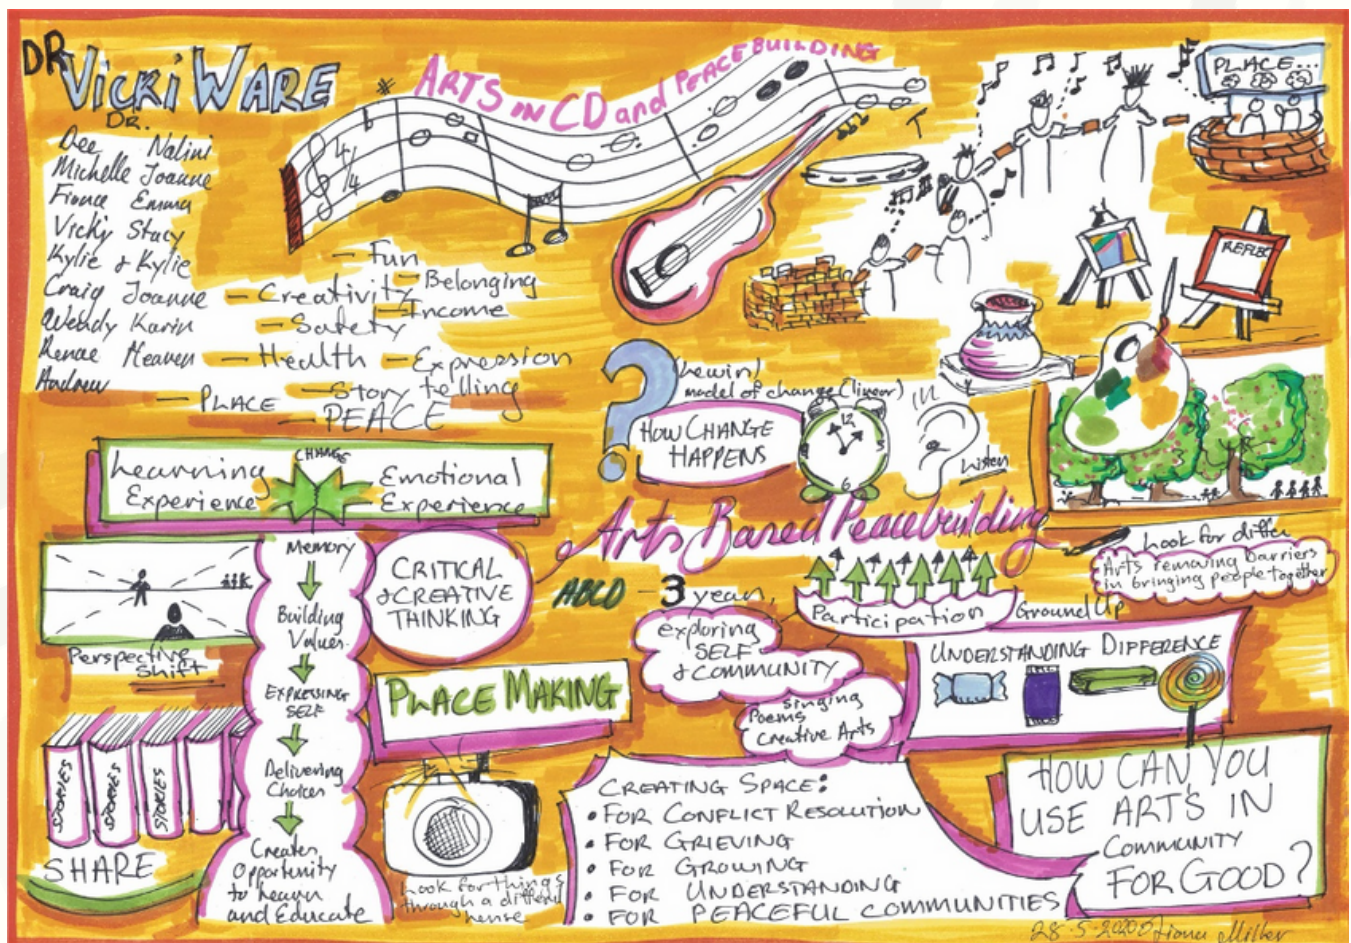 DR VICKI WARE
DR.
Dee Nalini
Michelle Joanne
Fiona Emma
Vicky Stacy
Kylie & Kylie
Craig Joanne
Wendy Karin
Renae
Andrew
ARTS IN CD and PEACEBUILDING
4/4
PLACE...
REFLEC
- Fun
- Creativity
- Belonging
- Income
- Safety
- Health
- Expression
- PLACE
- Story telling
- PEACE
?
(Lewin)
model of change (linear)
HOW CHANGE
HAPPENS
12
6
Listen
Learning
Experience
CHANGE
Emotional
Experience
Arts Based Peacebuilding
Memory
Building
Values
EXPRESSING
SELF
Delivering
Choices
Creates
Opportunity
to learn
and Educate
Perspective
Shift
CRITICAL
& CREATIVE
THINKING
ABCD - 3 year,
Participation
Ground Up
Look for differ
Arts removing barriers
in bringing people together
exploring
SELF
& COMMUNITY
singing
Poems
Creative Arts
UNDERSTANDING DIFFERENCE
PLACE MAKING
STORIES
STORIES
STORIES
SHARE
Look for things
through a different
lense
CREATING SPACE:
• FOR CONFLICT RESOLUTION
• FOR GRIEVING
• FOR GROWING
• FOR UNDERSTANDING
• FOR PEACEFUL COMMUNITIES
HOW CAN YOU
USE ARTS IN
COMMUNITY
FOR GOOD?
28-5-2020 Fiona Miller